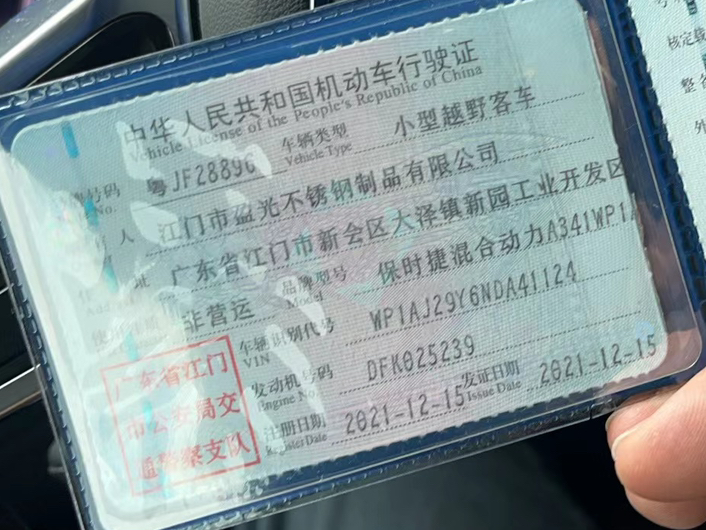 中华人民共和国机动车行驶证
Vehicle License of the People's Republic of China
号码 粤JF2889 车辆类型 小型越野客车
No. Vehicle Type
人 江门市盈光不锈钢制品有限公司
址 广东省江门市新会区大泽镇新园工业开发区
非营运 品牌型号 保时捷混合动力A341WP1
Model
车辆识别代号 WP1AJ29Y6NDA41124
VIN
发动机号码 DFK025239
Engine No.
注册日期 2021-12-15 发证日期 2021-12-15
Register Date Issue Date
广东省江门
市公安局交
通警察支队
核定载
整
外